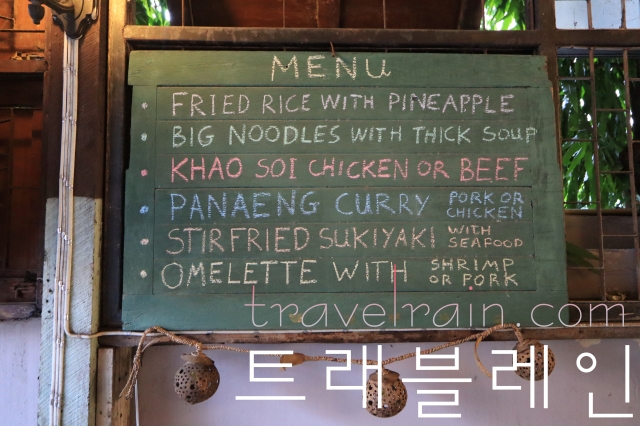 MENU
FRIED RICE WITH PINEAPPLE
BIG NOODLES WITH THICK SOUP
KHAO SOI CHICKEN OR BEEF
PANAENG CURRY PORK OR CHICKEN
STIRFRIED SUKIYAKI WITH SEAFOOD
OMELETTE WITH SHRIMP OR PORK
travelrain.com
트래블레인